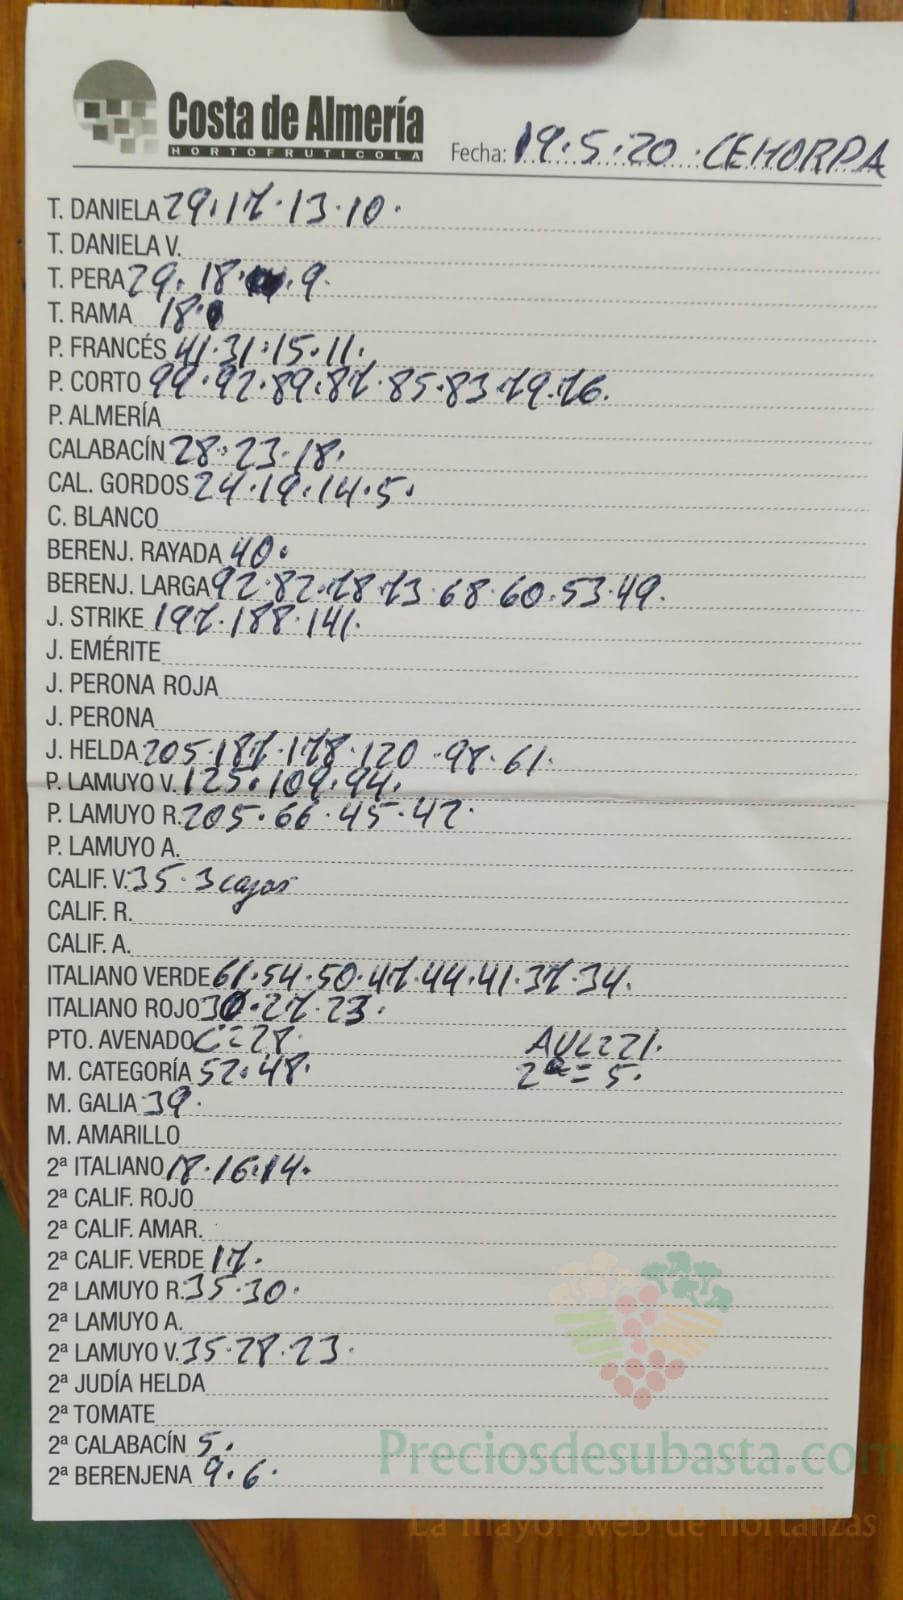 Costa de Almería
HORTOFRUTICOLA
Fecha: 19.5.20 . CEHORPA
T. DANIELA 29.17.13.10.
T. DANIELA V.
T. PERA 29. 18. . 9.
T. RAMA 18.
P. FRANCÉS 41.31.15.11.
P. CORTO 99.92.89.87.85.83.79.76.
P. ALMERÍA
CALABACÍN 28.23.18.
CAL. GORDOS 24.19.14.5.
C. BLANCO
BERENJ. RAYADA 40.
BERENJ. LARGA 92.82.78.73.68.60.53.49.
J. STRIKE 197.188.141.
J. EMÉRITE
J. PERONA ROJA
J. PERONA
J. HELDA 205.187.178.120.98.61.
P. LAMUYO V. 125.109.94.
P. LAMUYO R. 205.66.45.42.
P. LAMUYO A.
CALIF. V. 35.3 cajas
CALIF. R.
CALIF. A.
ITALIANO VERDE 61.54.50.47.44.41.37.34.
ITALIANO ROJO 30.27.23.
PTO. AVENADO C=28. AVE=21.
M. CATEGORÍA 52.48. 2ª= 5.
M. GALIA 39.
M. AMARILLO
2ª ITALIANO 18.16.14.
2ª CALIF. ROJO
2ª CALIF. AMAR.
2ª CALIF. VERDE 17.
2ª LAMUYO R. 35.30.
2ª LAMUYO A.
2ª LAMUYO V. 35.28.23.
2ª JUDÍA HELDA
2ª TOMATE
2ª CALABACÍN 5.
2ª BERENJENA 9.6.
Preciosdesubasta.com
La mayor web de hortalizas